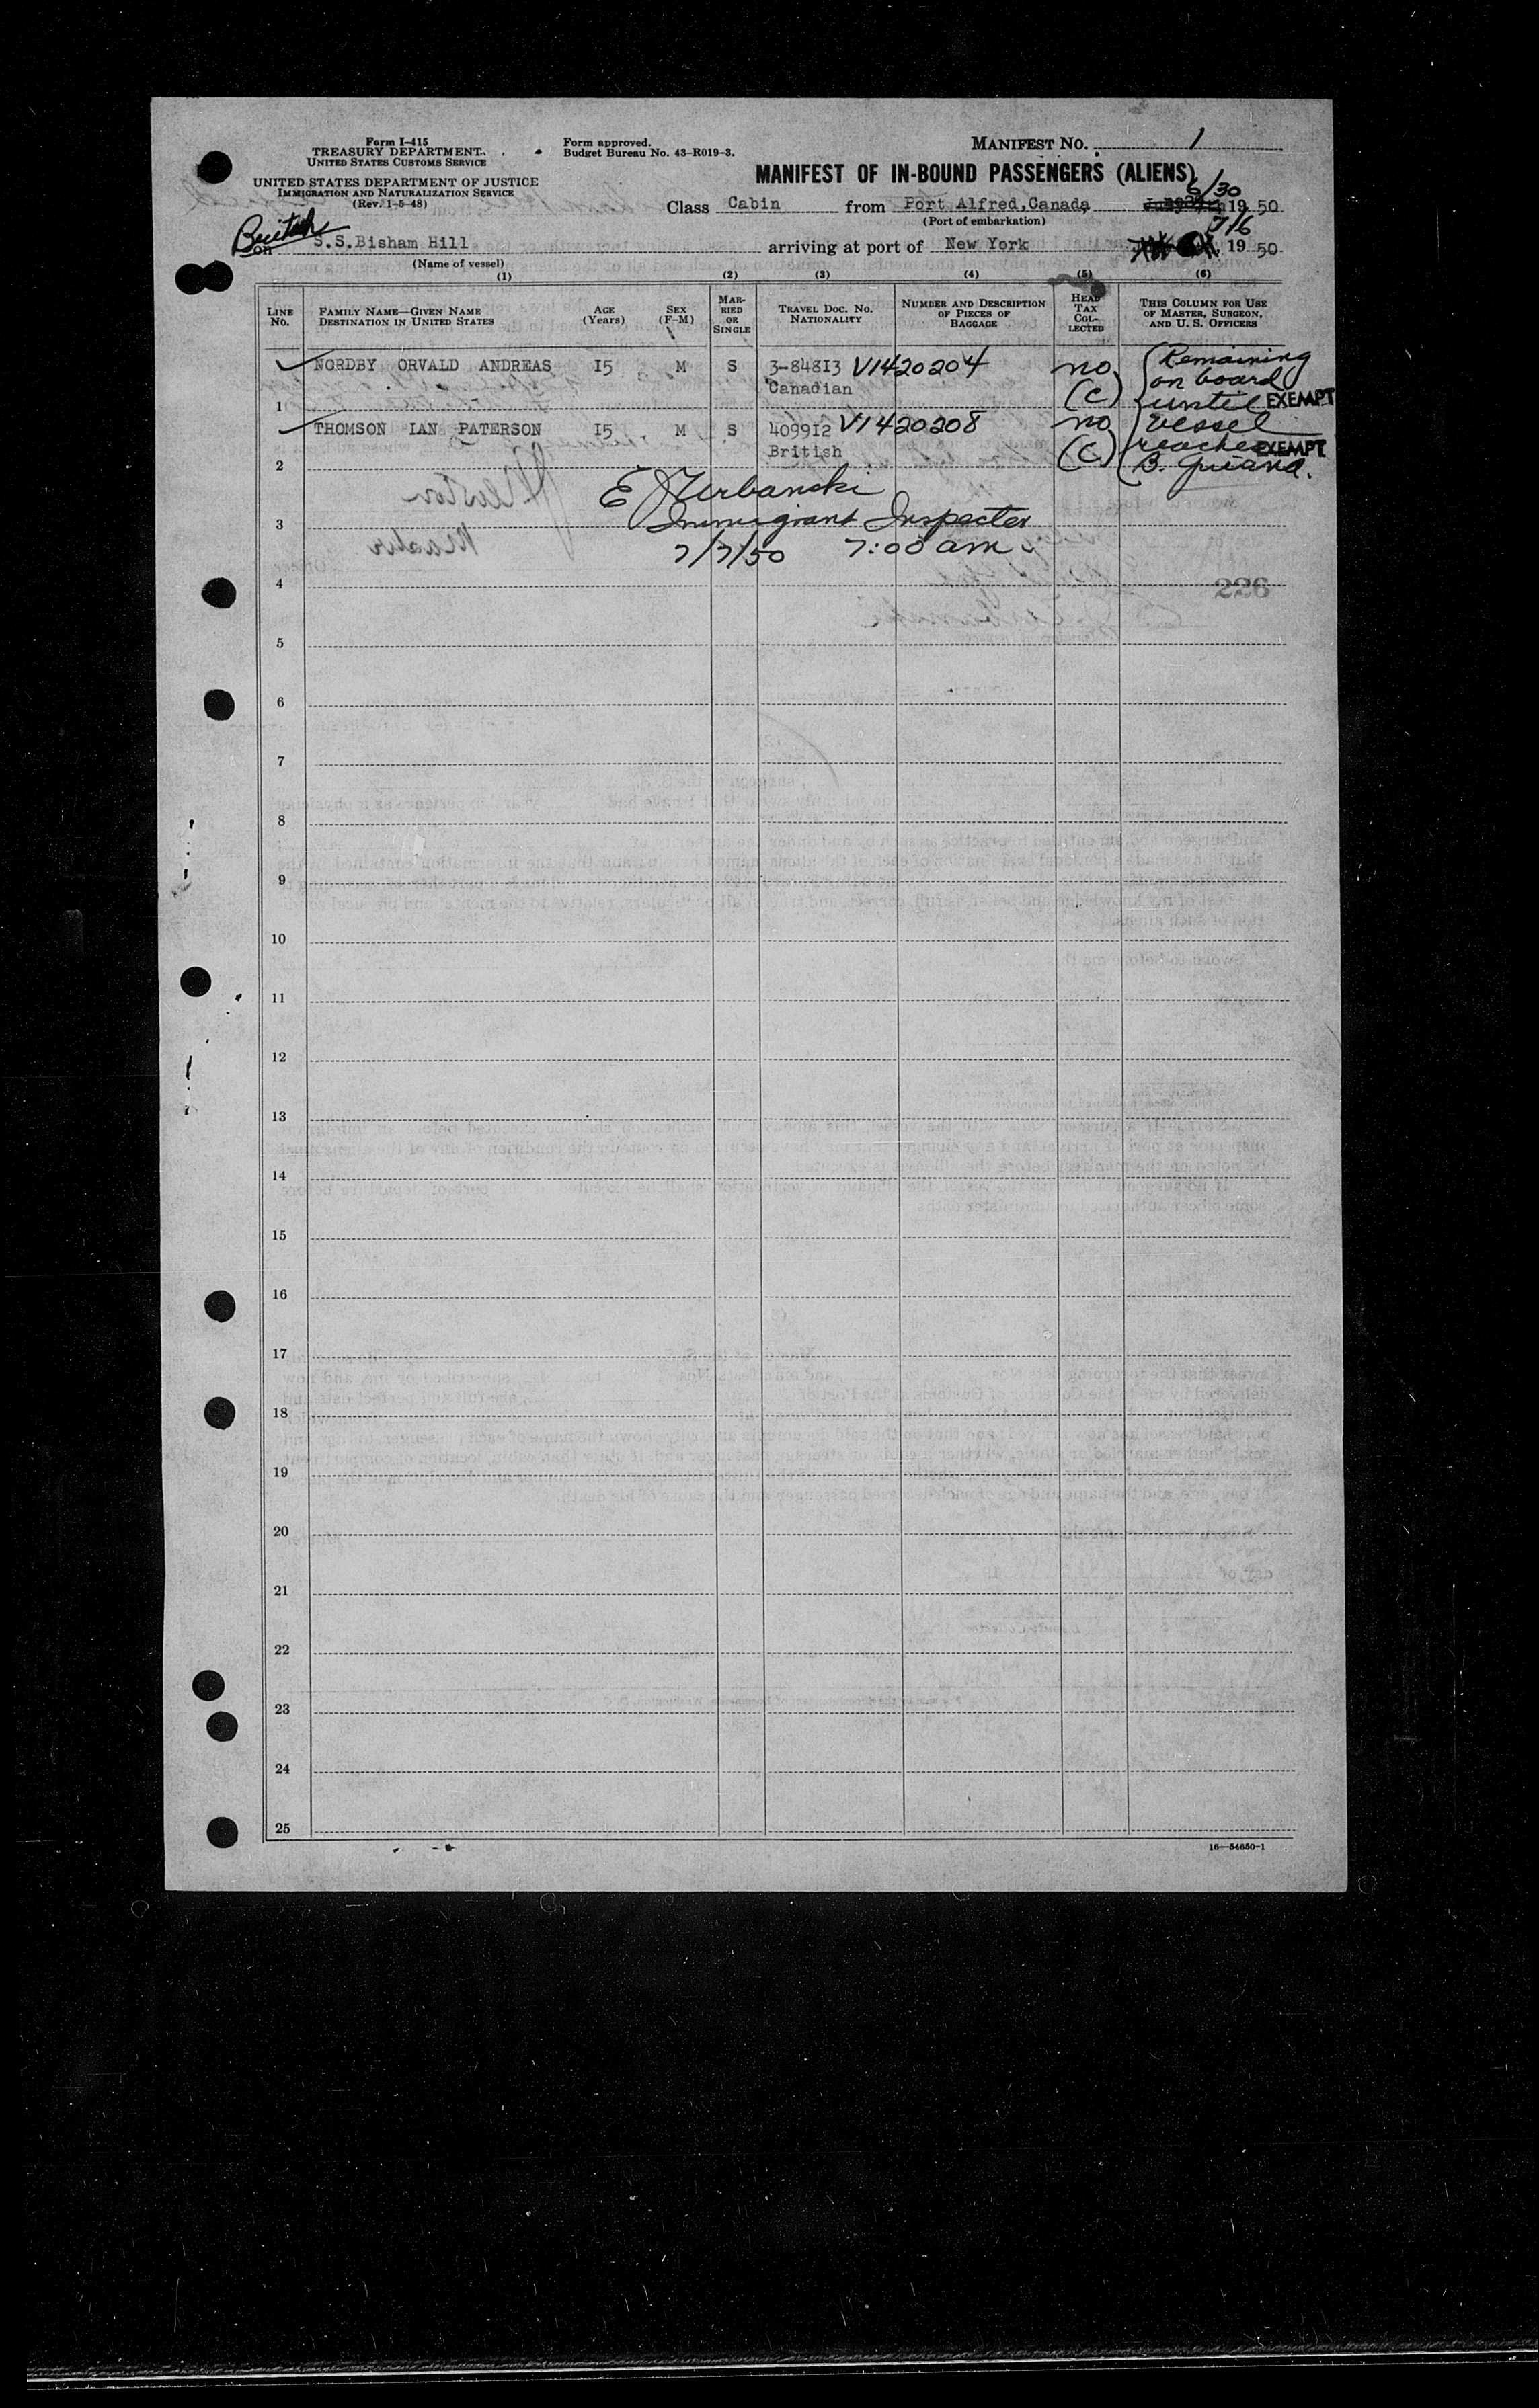 Form I-415
TREASURY DEPARTMENT
UNITED STATES CUSTOMS SERVICE
UNITED STATES DEPARTMENT OF JUSTICE
IMMIGRATION AND NATURALIZATION SERVICE
(Rev. 1-5-48)
Form approved.
Budget Bureau No. 43-R019-3.
MANIFEST No. 1
MANIFEST OF IN-BOUND PASSENGERS (ALIENS)
Class Cabin from Port Alfred,Canada 6/30 1950
(Port of embarkation)
British
on S.S.Bisham Hill arriving at port of New York 7/6, 1950
(Name of vessel)
(1) (2) (3) (4) (5) (6)
LINE No. FAMILY NAME—GIVEN NAME DESTINATION IN UNITED STATES AGE (Years) SEX (F-M) MARRIED OR SINGLE TRAVEL DOC. NO. NATIONALITY NUMBER AND DESCRIPTION OF PIECES OF BAGGAGE HEAD TAX COLLECTED THIS COLUMN FOR USE OF MASTER, SURGEON, AND U. S. OFFICERS
NORDBY ORVALD ANDREAS I5 M S 3-848I3 V1420204 no Remaining
Canadian (C) on board
1 until EXEMPT
THOMSON IAN PATERSON I5 M S 4099I2 V1420208 no vessel
British (C) reaches EXEMPT
2 B. Guiana.
E J Urbanski
3 Immigrant Inspector
7/7/50 7:00 am
4
226
5
6
7
8
9
10
11
12
13
14
15
16
17
18
19
20
21
22
23
24
25
16—54650-1